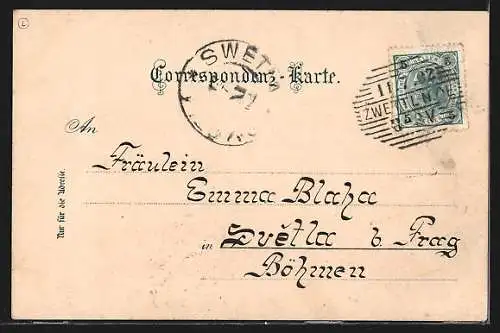 SWĚTLA
Correspondenz-Karte.
ZWETTL N.Ö.
An
Fräulein
Emma Blaha
in Světla b. Frag
Böhmen
Nur für die Adresse.